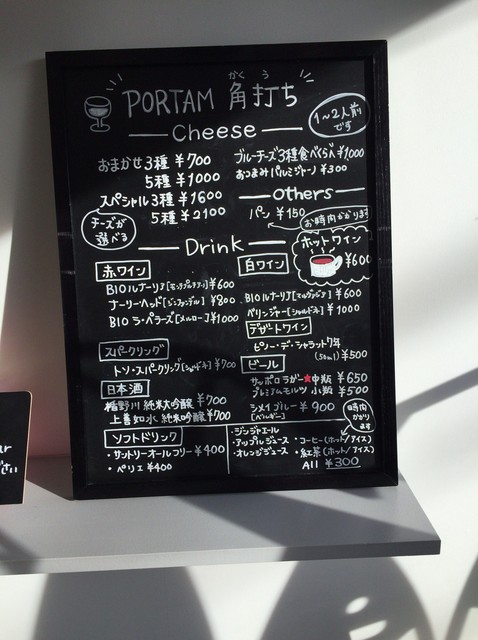 かくう
PORTAM 角打ち
1〜2人前です
Cheese
おまかせ3種 ¥700
5種 ¥1000
スペシャル3種 ¥1600
5種 ¥2100
チーズが選べる
ブルーチーズ3種食べくらべ ¥1000
おつまみパルミジャーノ ¥300
Others
パン ¥150
お時間かかります
ホットワイン
¥600
Drink
赤ワイン
BIOルナーリア ¥600
ナーリーヘッド[ジンファンデル] ¥800
BIO ラ・ペラーズ[メルロー] ¥1000
白ワイン
BIOルナーリア ¥600
ベリンジャー[シャルドネ] ¥1000
デザートワイン
ピノー・デ・シャラント7年
(50ml) ¥500
スパークリング
トソ・スパークリング[シャルドネ] ¥700
ビール
サッポロラガー★中瓶 ¥650
プレミアムモルツ 小瓶 ¥500
シメイブルー ¥900
[ベルギー]
日本酒
楯野川 純米大吟醸 ¥700
上善如水 純米吟醸 ¥700
時間かかります
ソフトドリンク
・サントリーオールフリー ¥400
・ペリエ ¥400
・ジンジャエール
・アップルジュース
・オレンジジュース
・コーヒー(ホット/アイス)
・紅茶(ホット/アイス)
All ¥300
ur
ださい